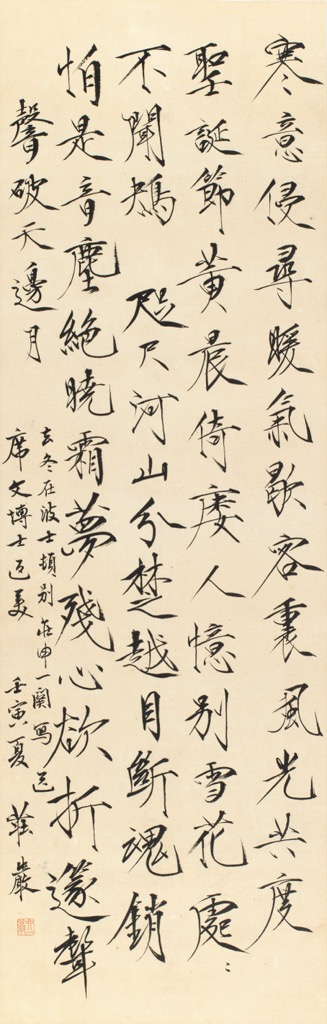 寒意侵尋暖氣歇客裏風光共度
聖誕節黃晨倚廔人憶別雪花處〻
不聞鴂 咫尺河山分楚越目斷魂銷
怕是音塵絕曉霜夢殘心欲折篴聲
聲破天邊月
去冬在波士頓別莊申一闋寫送
席文博士正美 壬寅夏 莊嚴